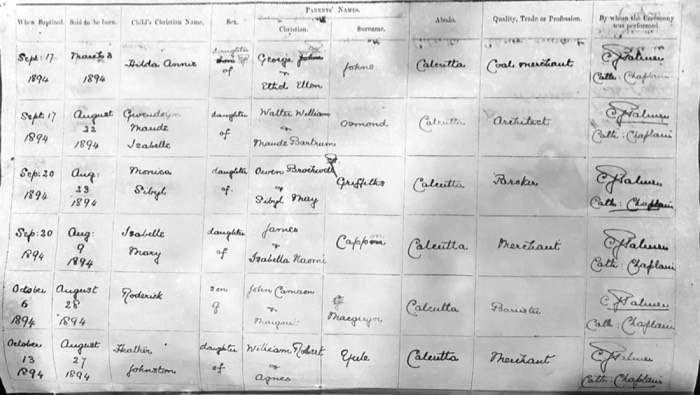 PARENTS' NAMES.
When Baptized. Said to be born. Child's Christian Name. Sex. Christian. Surname. Abode. Quality, Trade or Profession. By whom the Ceremony was performed.
Sept: 17 1894
March 1894
Hilda Annie
daughter
son of
of
George Johns
&
Ethel Ellen
Johns
Calcutta
Coal merchant
C. Palmer
Cath: Chaplain
Sept. 17
1894
August
22
1894
Gwendolyn
Maude
Isabelle
daughter
of
Walter William
&
Maude Bartrum
Osmond
Calcutta
Architect
Palmer
Cath: Chaplain
Sep: 20
1894
Aug:
23
1894
Monica
Sibyl
daughter
of
Owen
&
Sibyl May
Griffiths
Calcutta
Broker
Palmer
Cath: Chaplain
Sep: 20
1894
Aug:
9
1894
Isabelle
Mary
daughter
of
James
&
Isabella Naomi
Cappon
Calcutta
Merchant
Palmer
Cath: Chaplain
October
6
1894
August
28
1894
Roderick
son
of
John
&
Margaret
Macgregor
Calcutta
Barrister
Palmer
Cath: Chaplain
October
13
1894
August
27
1894
Heather
Johnston
daughter
of
William Robert
&
Agnes
Yule
Calcutta
Merchant
Palmer
Cath: Chaplain